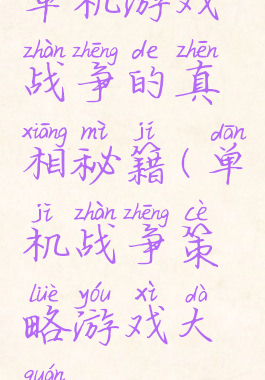 单机游戏
zhàn zhēng de zhēn
战争的真
xiāng mì jí dān
相秘籍(单
jī zhàn zhēng cè
机战争策
lüè yóu xì dà
略游戏大
quán